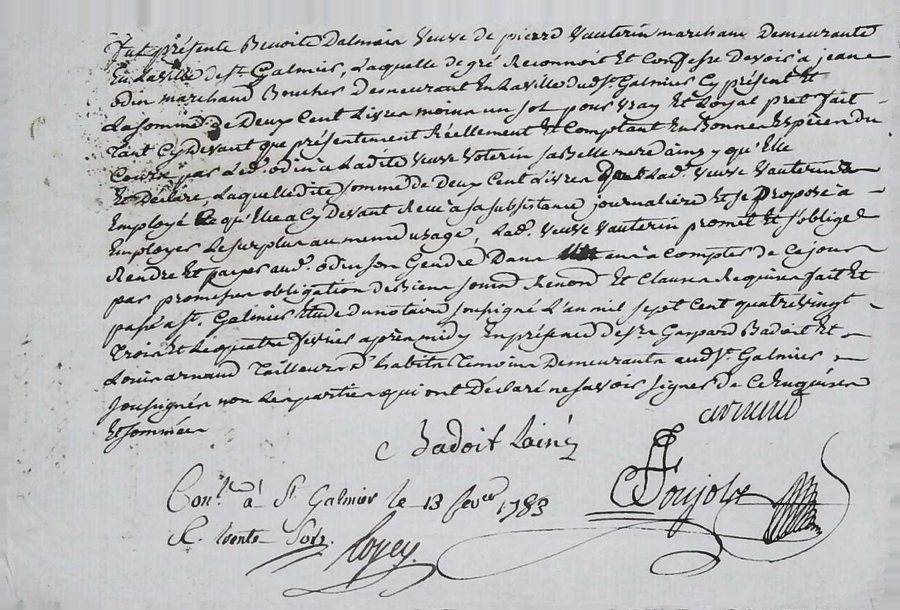 fut présente Benoite Dalmais veuve de pierre Vauterin marchand Demeurante
En la ville de st. Galmier, Laquelle de gré Reconnois Et Confesse Devoir à jeane
odin marchand Boucher Demeurant En la ville dud. st. Galmier Cy présent Et
La somme de Deux Cent Livres moins un sol pour vray Et Loyal pret fait
tant Cy devant que présentement Réellement Et Comptant En Bonnes Espèces du
Cours par Led. odin à Ladite veuve voterin sa Belle mere ainsy qu'Elle
Et Déclare, Laquelle dite somme de Deux Cent Livres Lad. veuve vauterin a
Employé Ce qu'Elle a Cy devant Reçu à sa subsistance journaliere Et se propose a
Employer Le surplus au meme usage, Lad. veuve vauterin promet Et s'oblige
Rendre Et payer aud. odin son Gendre Dans un an à Compter de Ce jour
par promesse obligation de Biens soumis Renond Et Clauses Requises fait Et
passé a st. Galmier Etude du notaire soussigné L'an mil sept Cent quatre vingt
trois Et Le quatre fevrier après midy En présence de sr. Gaspard Badoit Et
Louis arnaud Tailleur d'habits Temoins Demeurants aud. st. Galmier
soussignés non Les parties qui ont Déclaré ne savoir signer de Ce Enquises
Et sommées
arnaud
Badoit Lainé
Con.lé à St. Galmier le 13 fevrer 1783
R. trente Sols.